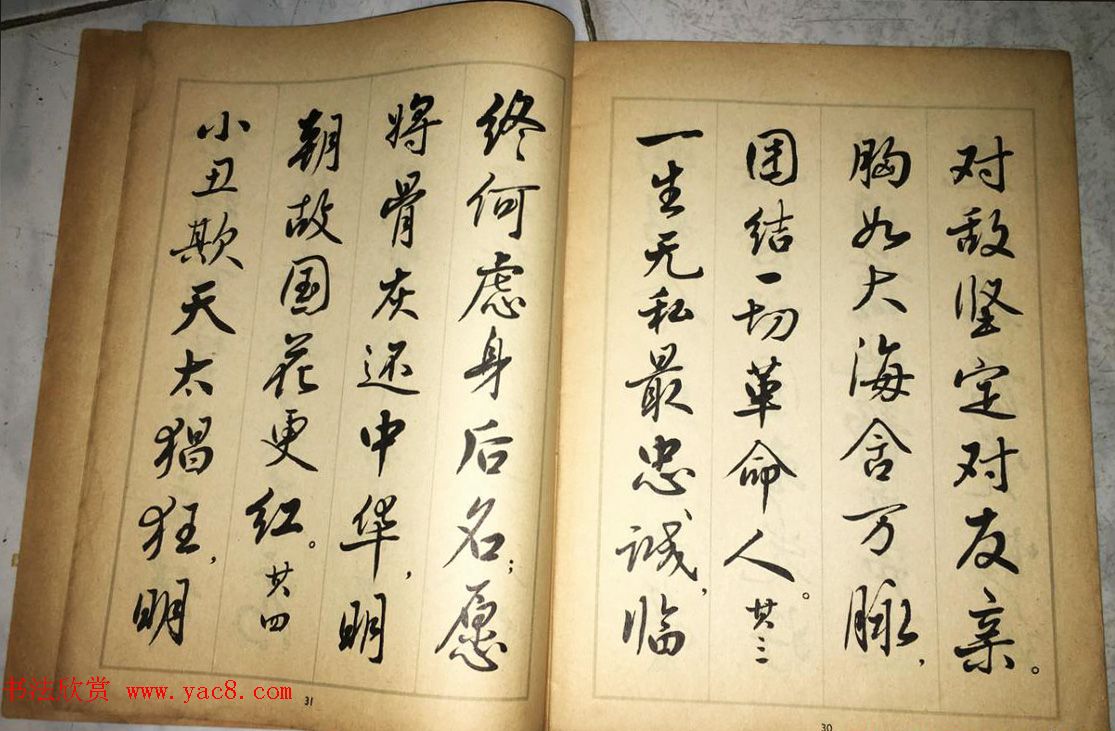 对敌坚定对友亲。
胸如大海含万脉，
团结一切革命人。其三
一生无私最忠诚，临
30
终何虑身后名；愿
将骨灰还中华，明
朝故国花更红。其四
小丑欺天太猖狂，明
31
书法欣赏 www.yac8.com